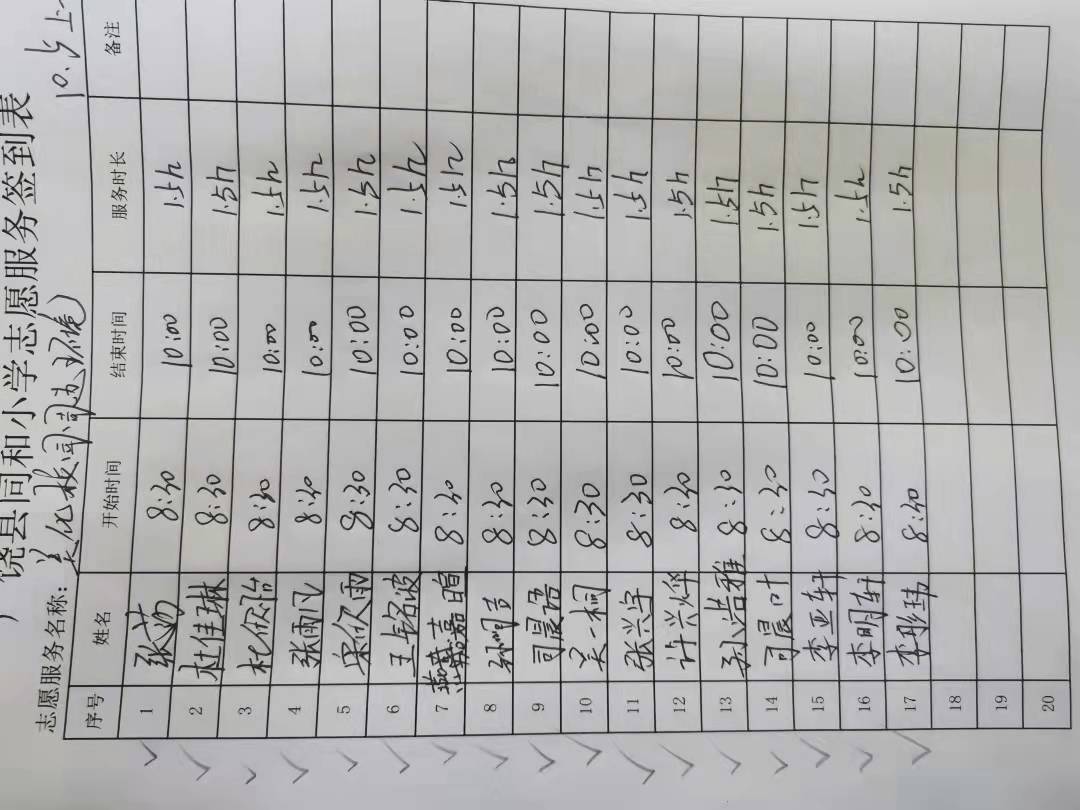 饶县同和小学志愿服务签到表
志愿服务名称：美化校园周边环境 10.5上
序号 姓名 开始时间 结束时间 服务时长 备注
1 张芮 8:30 10:00 1.5h
2 杜佳琳 8:30 10:00 1.5h
3 8:30 10:00 1.5h
4 张雨飞 8:30 10:00 1.5h
5 8:30 10:00 1.5h
6 王铭波 8:30 10:00 1.5h
7 燕嘉暄 8:30 10:00 1.5h
8 8:30 10:00 1.5h
9 司晨语 8:30 10:00 1.5h
10 吴一桐 8:30 10:00 1.5h
11 张兴宇 8:30 10:00 1.5h
12 许兴烨 8:30 10:00 1.5h
13 孙浩雅 8:30 10:00 1.5h
14 司晨叶 8:30 10:00 1.5h
15 李亚轩 8:30 10:00 1.5h
16 李明轩 8:30 10:00 1.5h
17 李彤玮 8:30 10:00 1.5h
18
19
20